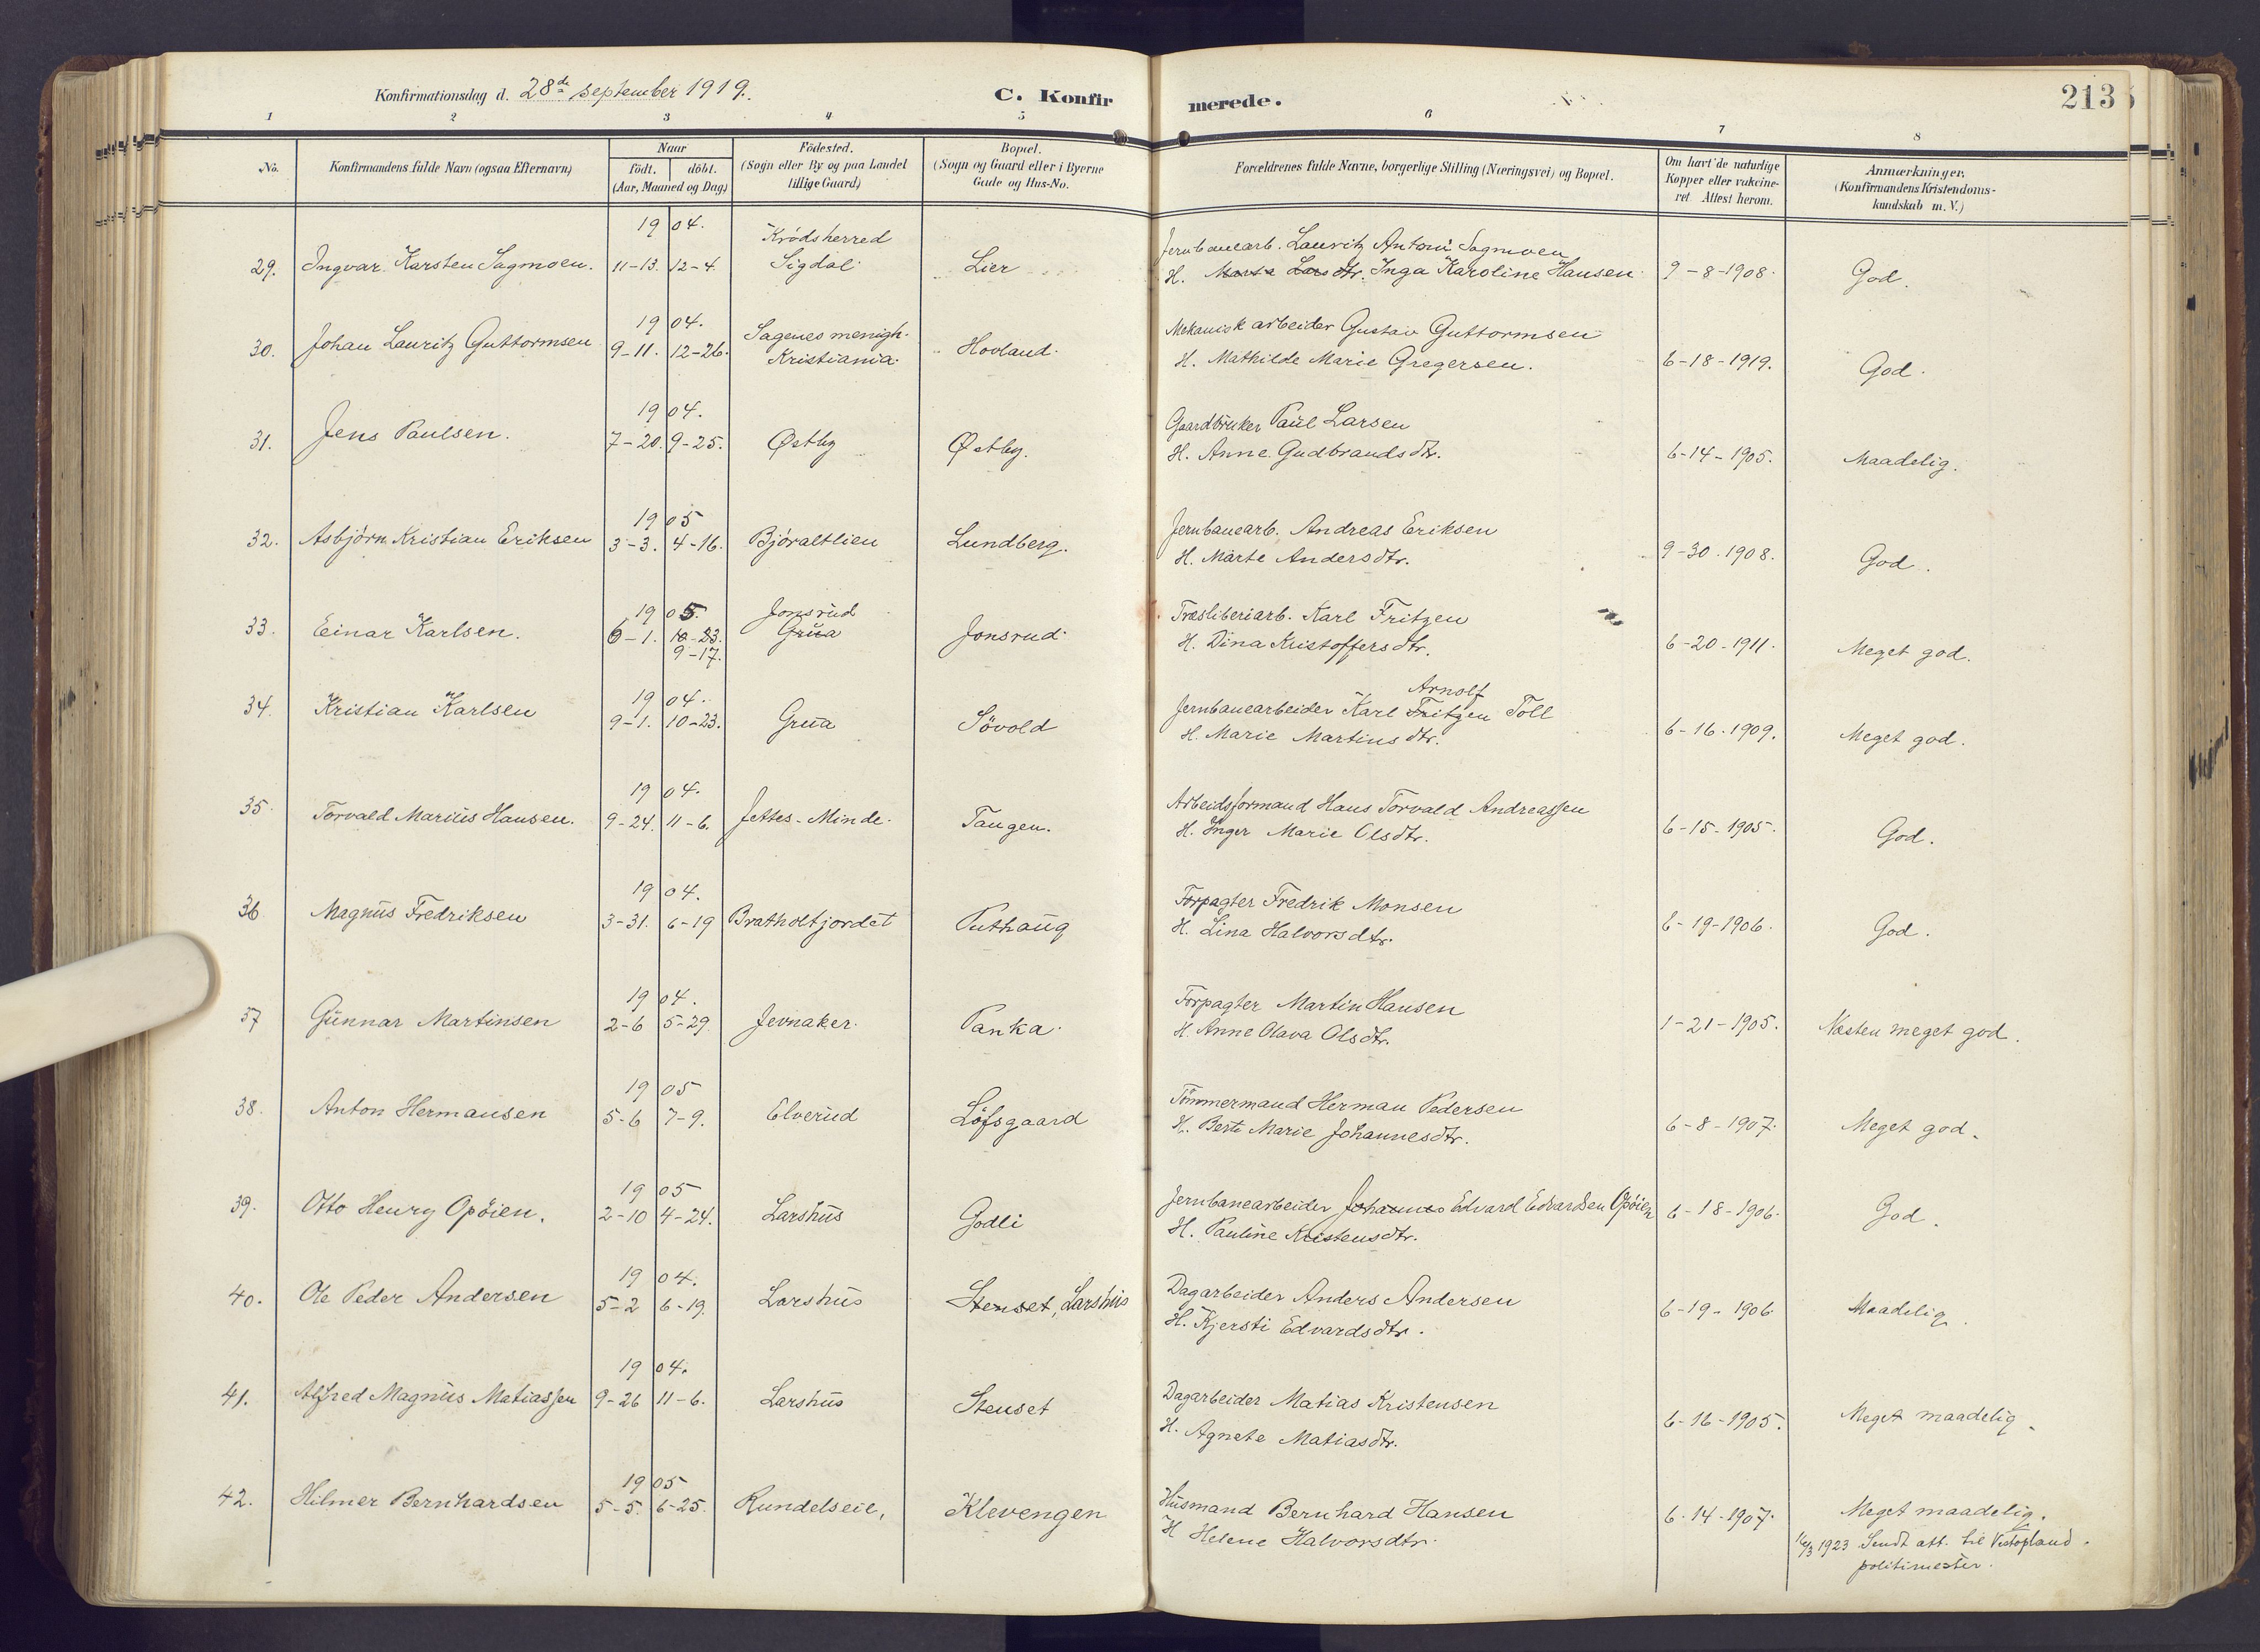 Konfirmationsdag d. 28de september 1919.
C. Konfirmerede.
213
1 2 3 4 5 6 7 8
No.
Konfirmandens fulde Navn (ogsaa Efternavn)
Naar
födt. döbt.
(Aar, Maaned og Dag)
Födested.
(Sogn eller By og paa Landet
tillige Gaard)
Bopæl.
(Sogn og Gaard eller i Byerne
Gade og Hus-No.
Forældrenes fulde Navne, borgerlige Stilling (Næringsvei) og Bopæl.
Om havt de naturlige
Kopper eller vakcine-
ret. Attest herom.
Anmærkninger.
(Konfirmandens Kristendoms-
kundskab m. V.)
1904. Krödsherred Jernbanearb. Lauritz Anton Sagmoen
29. Ingvar Karsten Sagmoen. 11-13. 12-4. Sigdal Lier H. Marte Lars dtr. Inga Karoline Hansen 9-8-1908. God.
1904. Sagenes menigh. Mekanisk arbeider Gustav Guttormsen
30. Johan Lauritz Guttormsen 9-11. 12-26. Kristiania. Hovland. H. Mathilde Marie Gregersen. 6-18-1919. God.
1904. Gaardbruker Paul Larsen
31. Jens Paulsen. 7-20. 9-25. Østby Østby. H. Anne Gudbrandsdtr. 6-14-1905. Maadelig.
1905 Jernbanearb. Andreas Eriksen
32. Asbjörn Kristian Eriksen 3-3. 4-16. Björaltlien Lundberg. H. Marte Andersdtr. 9-30.1908. God.
1905. Jonsrud Træsliberiarb. Karl Fritzen
33. Einar Karlsen. 6-1. 10-23. Grua Jonsrud. H. Dina Kristoffersdtr. 6-20-1911. Meget god.
9-17.
1904. Arnolf
34. Kristian Karlsen 9-1. 10-23. Grua Sövold Jernbanearbeider Karl Fritzen Toll 6-16.1909. Meget god.
H. Marie Martinsdtr.
1904. Arbeidsformand Hans Torvald Andreassen
35. Torvald Marius Hansen. 9-24. 11-6. Jettes-Minde. Tangen. H. Inger Marie Olsdtr. 6-15-1905. God.
1904. Forpagter Fredrik Monsen
36 Magnus Fredriksen 3-31. 6-19 Bratholtjordet Puthaug H. Lina Halvorsdtr. 6-19-1906. God.
1904. Forpagter Martin Hansen
37 Gunnar Martinsen 2-6 5-29. Jevnaker. Panka. H. Anne Olava Olsdtr. 1-21-1905. Næsten meget god.
1905 Tömmermand Herman Pedersen
38. Anton Hermansen 5-6 7-9. Elverud Löfsgaard H. Berte Marie Johannesdtr. 6-8-1907. Meget god.
1905 Jernbanearbeider Johannes Edvard Edvardsen Opöien
39. Otto Henry Opöien. 2-10 4-24. Larshus Godli H. Pauline Kristensdtr. 6-18-1906. God.
1904. Dagarbeider Anders Andersen
40. Ole Peder Andersen 5-2 6-19. Larshus Stenset, Larshus H. Kjersti Edvardsdtr. 6-19-1906. Maadelig.
1904. Dagarbeider Matias Kristensen
41. Alfred Magnus Matiassen 9-26 11-6. Larshus Stenset H. Agnete Matiasdtr. 6-16-1905. Meget maadelig.
1905 Husmand Bernhard Hansen
42. Hilmer Bernhardsen 5-5. 6-25. Rundelseie, Klevengen H Helene Halvorsdtr. 6-14-1907. Meget maadelig.
16/3 1923 Sendt att. til Vestopland
politimester.